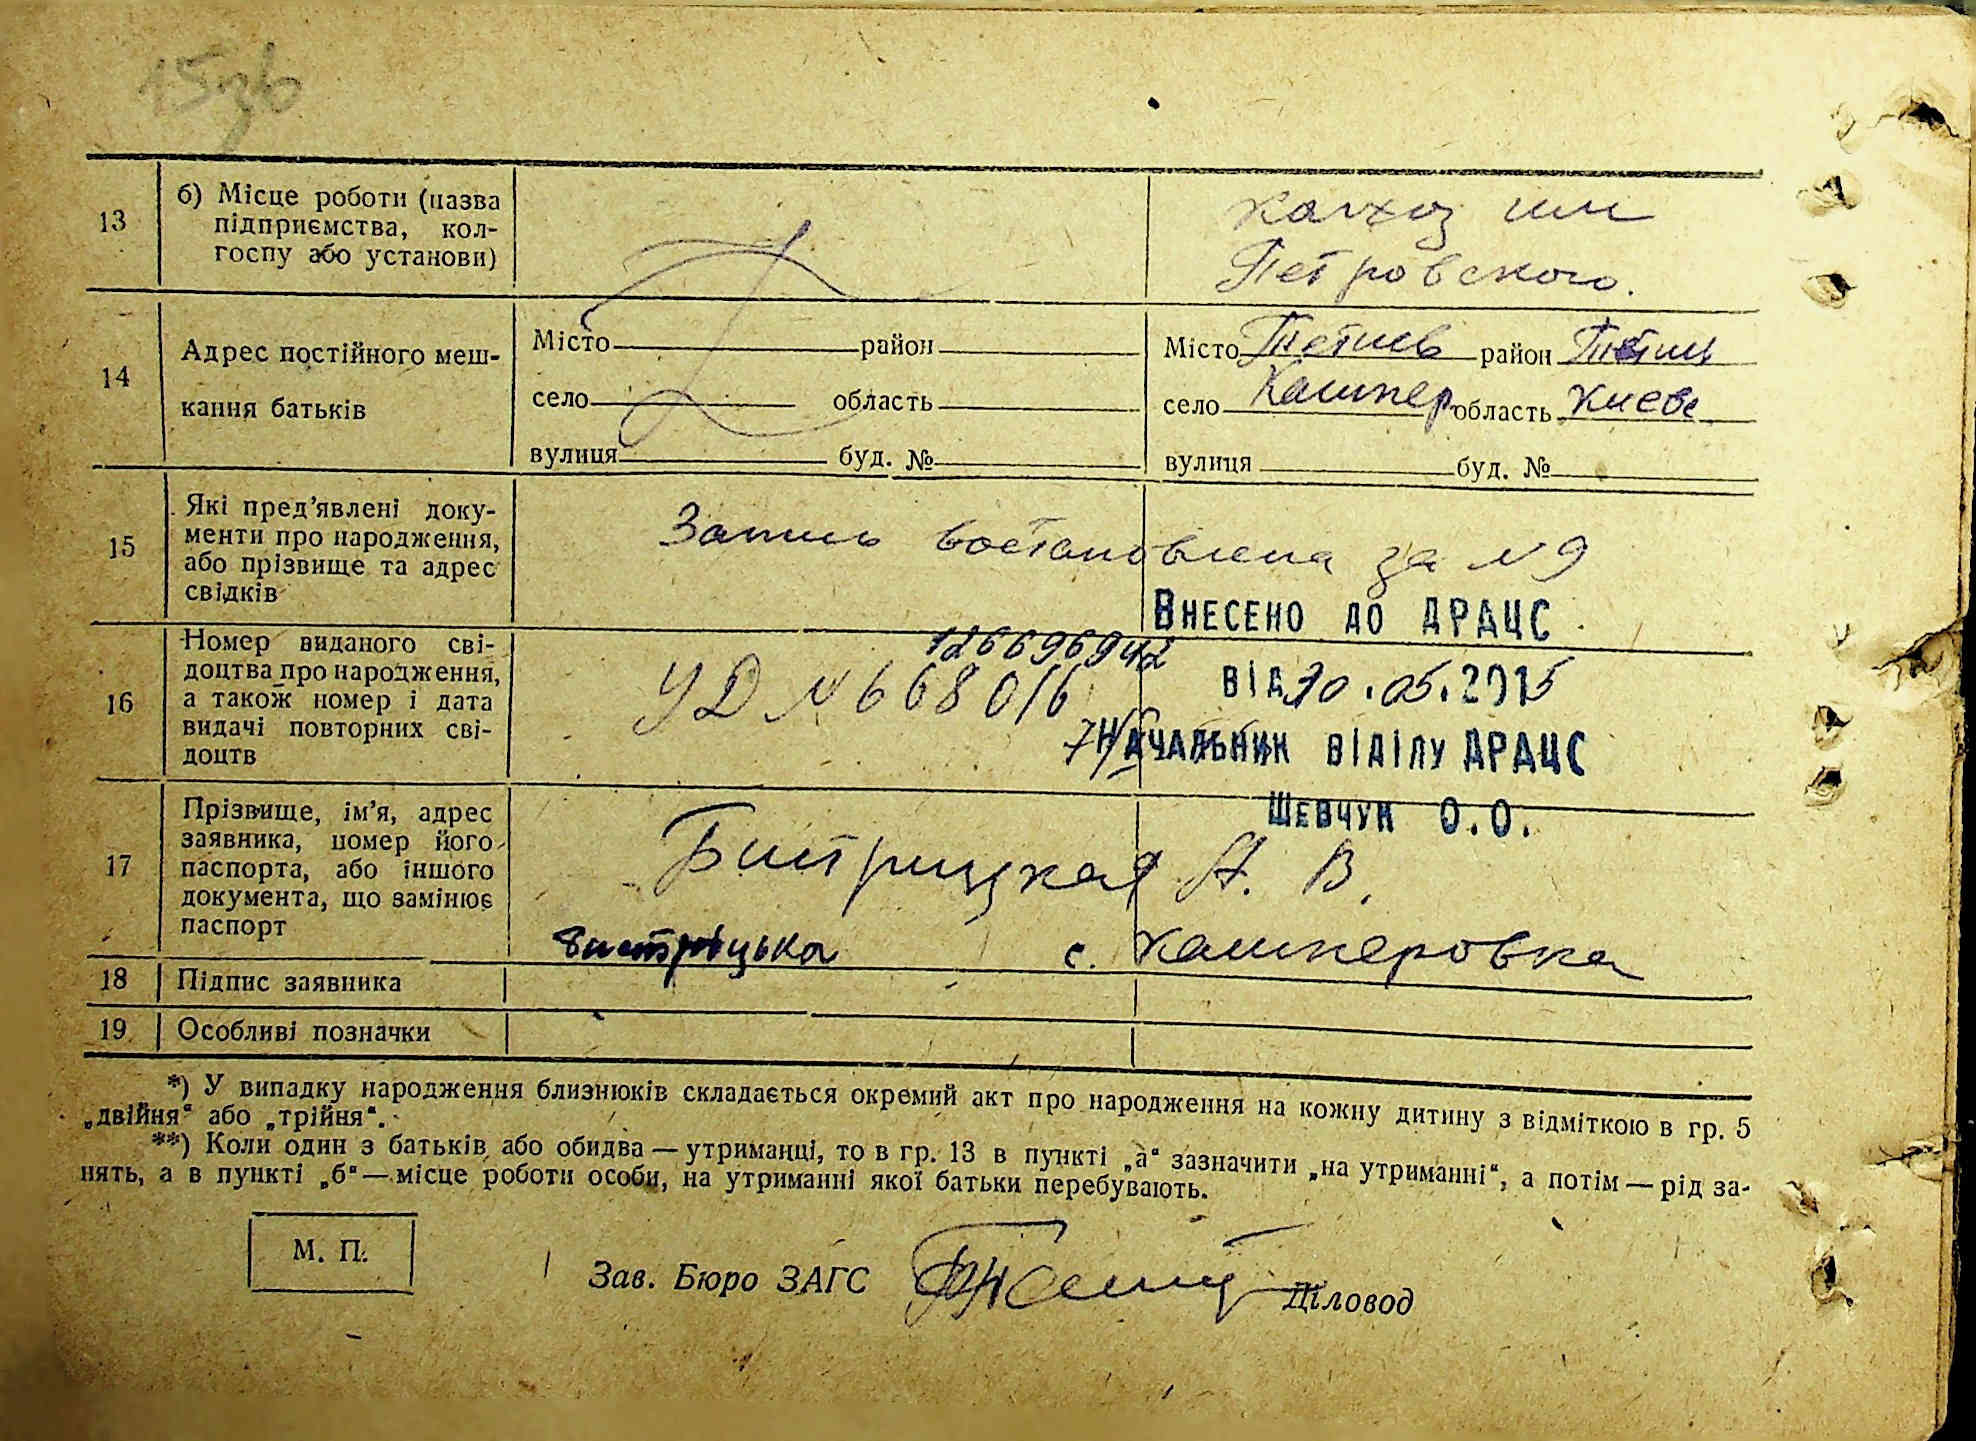 15зв
13
б) Місце роботи (назва
підприємства, кол-
госпу або установи)
колхоз им
Петровского.
14
Адрес постійного меш-
кання батьків
Місто район
село область
вулиця буд. №
Місто Тетиев район Тетиев
село Кашпер область Киевс
вулиця буд. №
15
Які пред’явлені доку-
менти про народження,
або прізвище та адрес
свідків
Запись востановлена за №9
Внесено до ДРАЦС
16
Номер виданого сві-
доцтва про народження,
а також номер і дата
видачі повторних сві-
доцтв
126696942
УД №668016
від 30.05.2015
Начальник відділу ДРАЦС
Шевчук О.О.
17
Прізвище, ім’я, адрес
заявника, номер його
паспорта, або іншого
документа, що замінює
паспорт
Бистрицкая А. В.
Бистріцька с. Кашперовка
18 Підпис заявника
19 Особливі позначки
*) У випадку народження близнюків складається окремий акт про народження на кожну дитину з відміткою в гр. 5
„двійня“ або „трійня“.
**) Коли один з батьків або обидва — утриманці, то в гр. 13 в пункті „а“ зазначити „на утриманні“, а потім — рід за-
нять, а в пункті „б“ — місце роботи особи, на утриманні якої батьки перебувають.
М. П.
Зав. Бюро ЗАГС Діловод